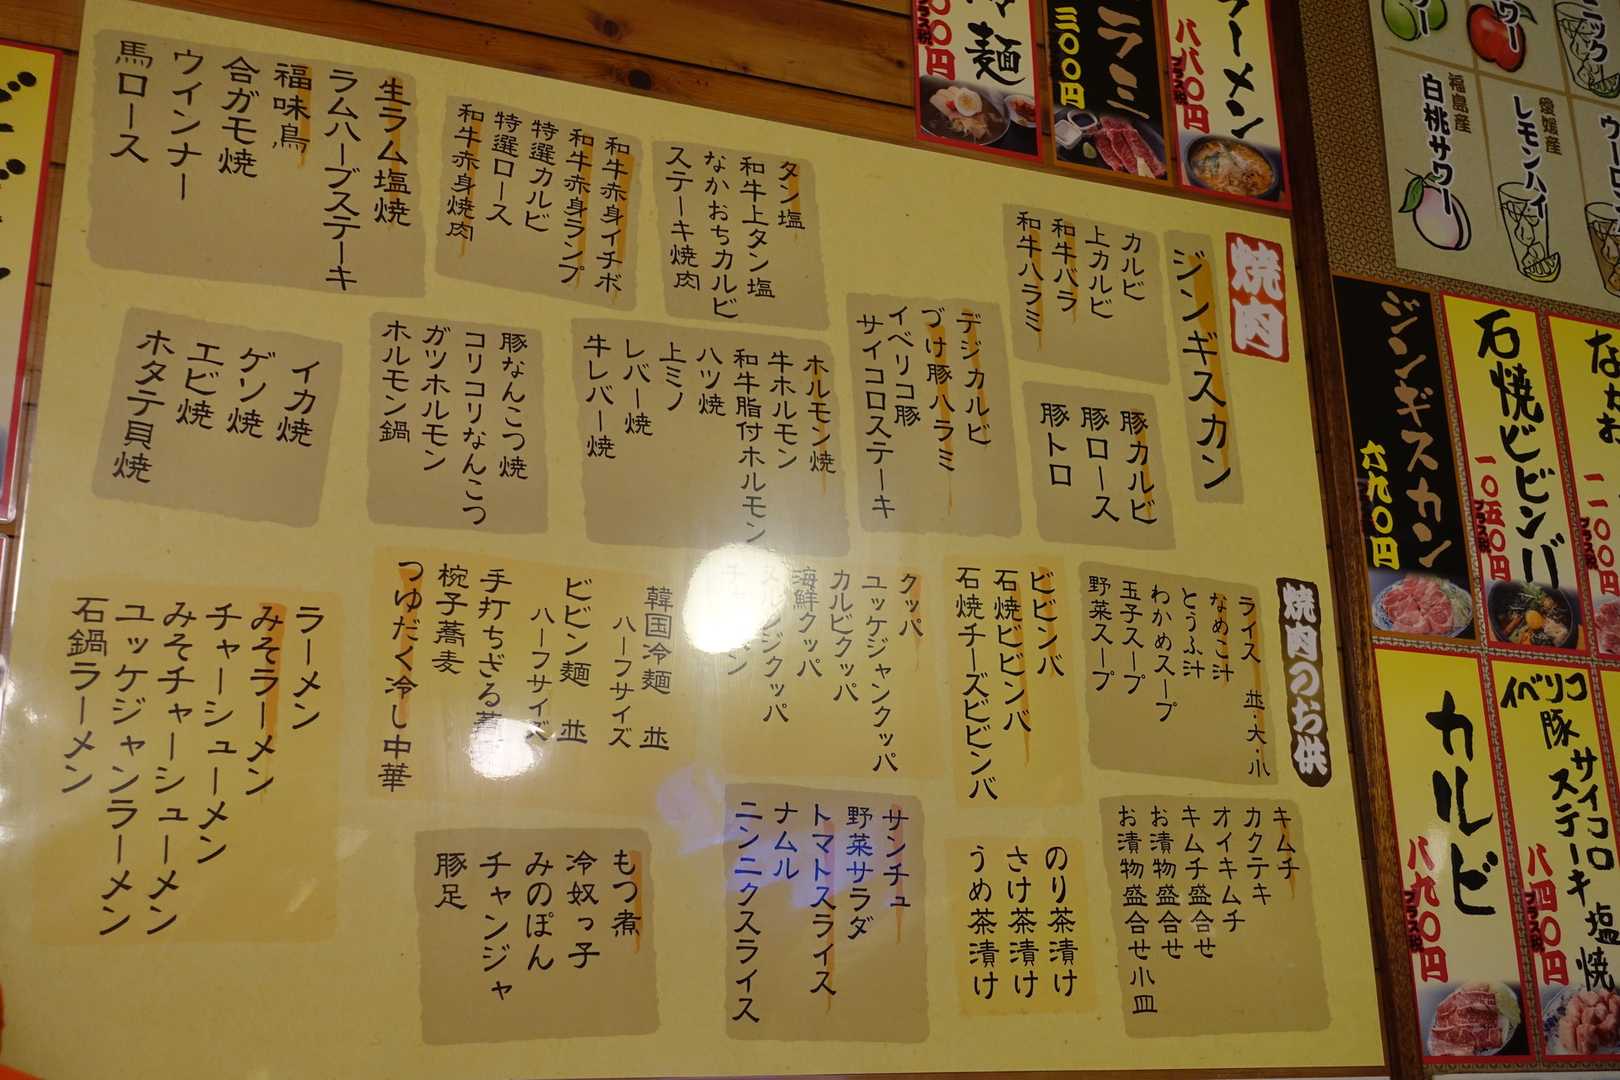 焼肉
ジンギスカン
カルビ
上カルビ
和牛バラ
和牛ハラミ
豚カルビ
豚ロース
豚トロ
デジカルビ
づけ豚ハラミ
イベリコ豚
サイコロステーキ
タン塩
和牛上タン塩
なかおちカルビ
ステーキ焼肉
ホルモン焼
牛ホルモン
和牛脂付ホルモン
ハツ焼
上ミノ
レバー焼
牛レバー焼
和牛赤身イチボ
和牛赤身ランプ
特選カルビ
特選ロース
和牛赤身焼肉
豚なんこつ焼
コリコリなんこつ
ガツホルモン
ホルモン鍋
生ラム塩焼
ラムハーブステーキ
福味鳥
合ガモ焼
ウインナー
馬ロース
イカ焼
ゲソ焼
エビ焼
ホタテ貝焼
焼肉のお供
ライス 並・大・小
なめこ汁
とうふ汁
わかめスープ
玉子スープ
野菜スープ
キムチ
カクテキ
オイキムチ
キムチ盛合せ
お漬物盛合せ
お漬物盛合せ小皿
ビビンバ
石焼ビビンバ
石焼チーズビビンバ
のり茶漬け
さけ茶漬け
うめ茶漬け
クッパ
ユッケジャンクッパ
カルビクッパ
海鮮クッパ
サンチュ
野菜サラダ
トマトスライス
ナムル
ニンニクスライス
韓国冷麺 並
ハーフサイズ
ビビン麺 並
ハーフサイズ
手打ちざる
椀子蕎麦
つゆだく冷し中華
もつ煮
冷奴っ子
みのぽん
チャンジャ
豚足
ラーメン
みそラーメン
チャーシューメン
みそチャーシューメン
ユッケジャンラーメン
石鍋ラーメン
ラーメン
八八〇円
プラス税
ラミ
三〇〇円
麺
〇〇円
プラス税
福島産
白桃サワー
愛媛産
レモンハイ
ジンギスカン
六九〇円
石焼ビビンバ
一〇五〇円
プラス税
一一〇〇
カルビ
八九〇円
プラス税
イベリコ豚
サイコロステーキ塩焼
八四〇円
プラス税